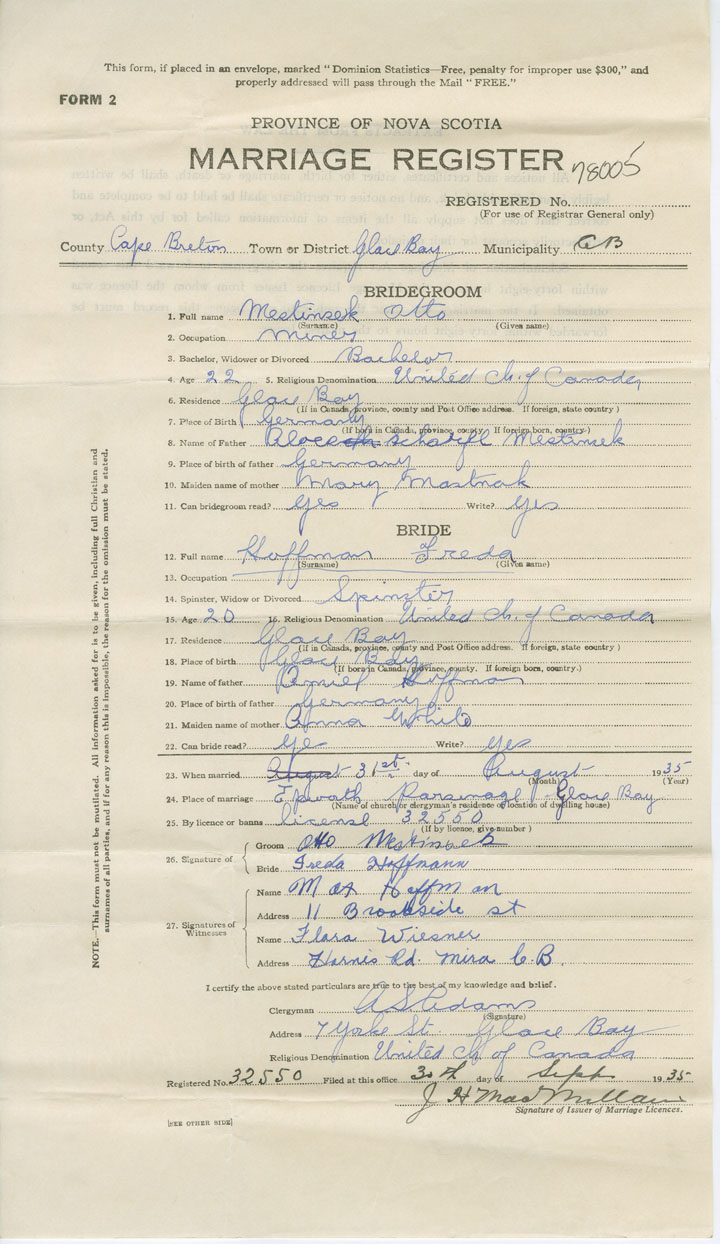 This form, if placed in an envelope, marked "Dominion Statistics—Free, penalty for improper use $300," and
properly addressed will pass through the Mail "FREE."
FORM 2
PROVINCE OF NOVA SCOTIA
MARRIAGE REGISTER 78005
REGISTERED No.
(For use of Registrar General only)
County Cape Breton Town or District Glace Bay Municipality CB
BRIDEGROOM
1. Full name Mestinsek Otto
(Surname) (Given name)
2. Occupation miner
3. Bachelor, Widower or Divorced Bachelor
4. Age 22 5. Religious Denomination United Ch. of Canada
6. Residence Glace Bay
(If in Canada, province, county and Post Office address. If foreign, state country)
7. Place of Birth Germany
(If born in Canada, province, county. If foreign born, country.)
8. Name of Father Mestinsek
9. Place of birth of father Germany
10. Maiden name of mother Mary Mastnak
11. Can bridegroom read? Yes Write? Yes
BRIDE
12. Full name Hoffman Freda
(Surname) (Given name)
13. Occupation
14. Spinster, Widow or Divorced Spinster
15. Age 20 16. Religious Denomination United Ch. of Canada
17. Residence Glace Bay
(If in Canada, province, county and Post Office address. If foreign, state country)
18. Place of birth Glace Bay
(If born in Canada, province, county. If foreign born, country.)
19. Name of father Hoffman
20. Place of birth of father Germany
21. Maiden name of mother Anna White
22. Can bride read? Yes Write? Yes
23. When married August 31st day of August 1935
(Month) (Year)
24. Place of marriage Epwath Parsinage Glace Bay
(Name of church or clergyman's residence or location of dwelling house)
25. By licence or banns license 32550
(If by licence, give number)
26. Signature of
Groom Otto Mestinsek
Bride Freda Hoffmann
27. Signatures of Witnesses
Name Max Hoffman
Address 11 Brookside st
Name Flara Wiesner
Address Harnis Rd. Mira C.B.
I certify the above stated particulars are true to the best of my knowledge and belief.
Clergyman A S Adams
(Signature)
Address 7 Yorke St. Glace Bay
Religious Denomination United Ch of Canada
Registered No. 32550 Filed at this office 30th day of Sept 1935
J H MacMillan
Signature of Issuer of Marriage Licences.
[SEE OTHER SIDE]
NOTE.—This form must not be mutilated. All information asked for is to be given, including full Christian and
surnames of all parties, and if for any reason this is impossible, the reason for the omission must be stated.